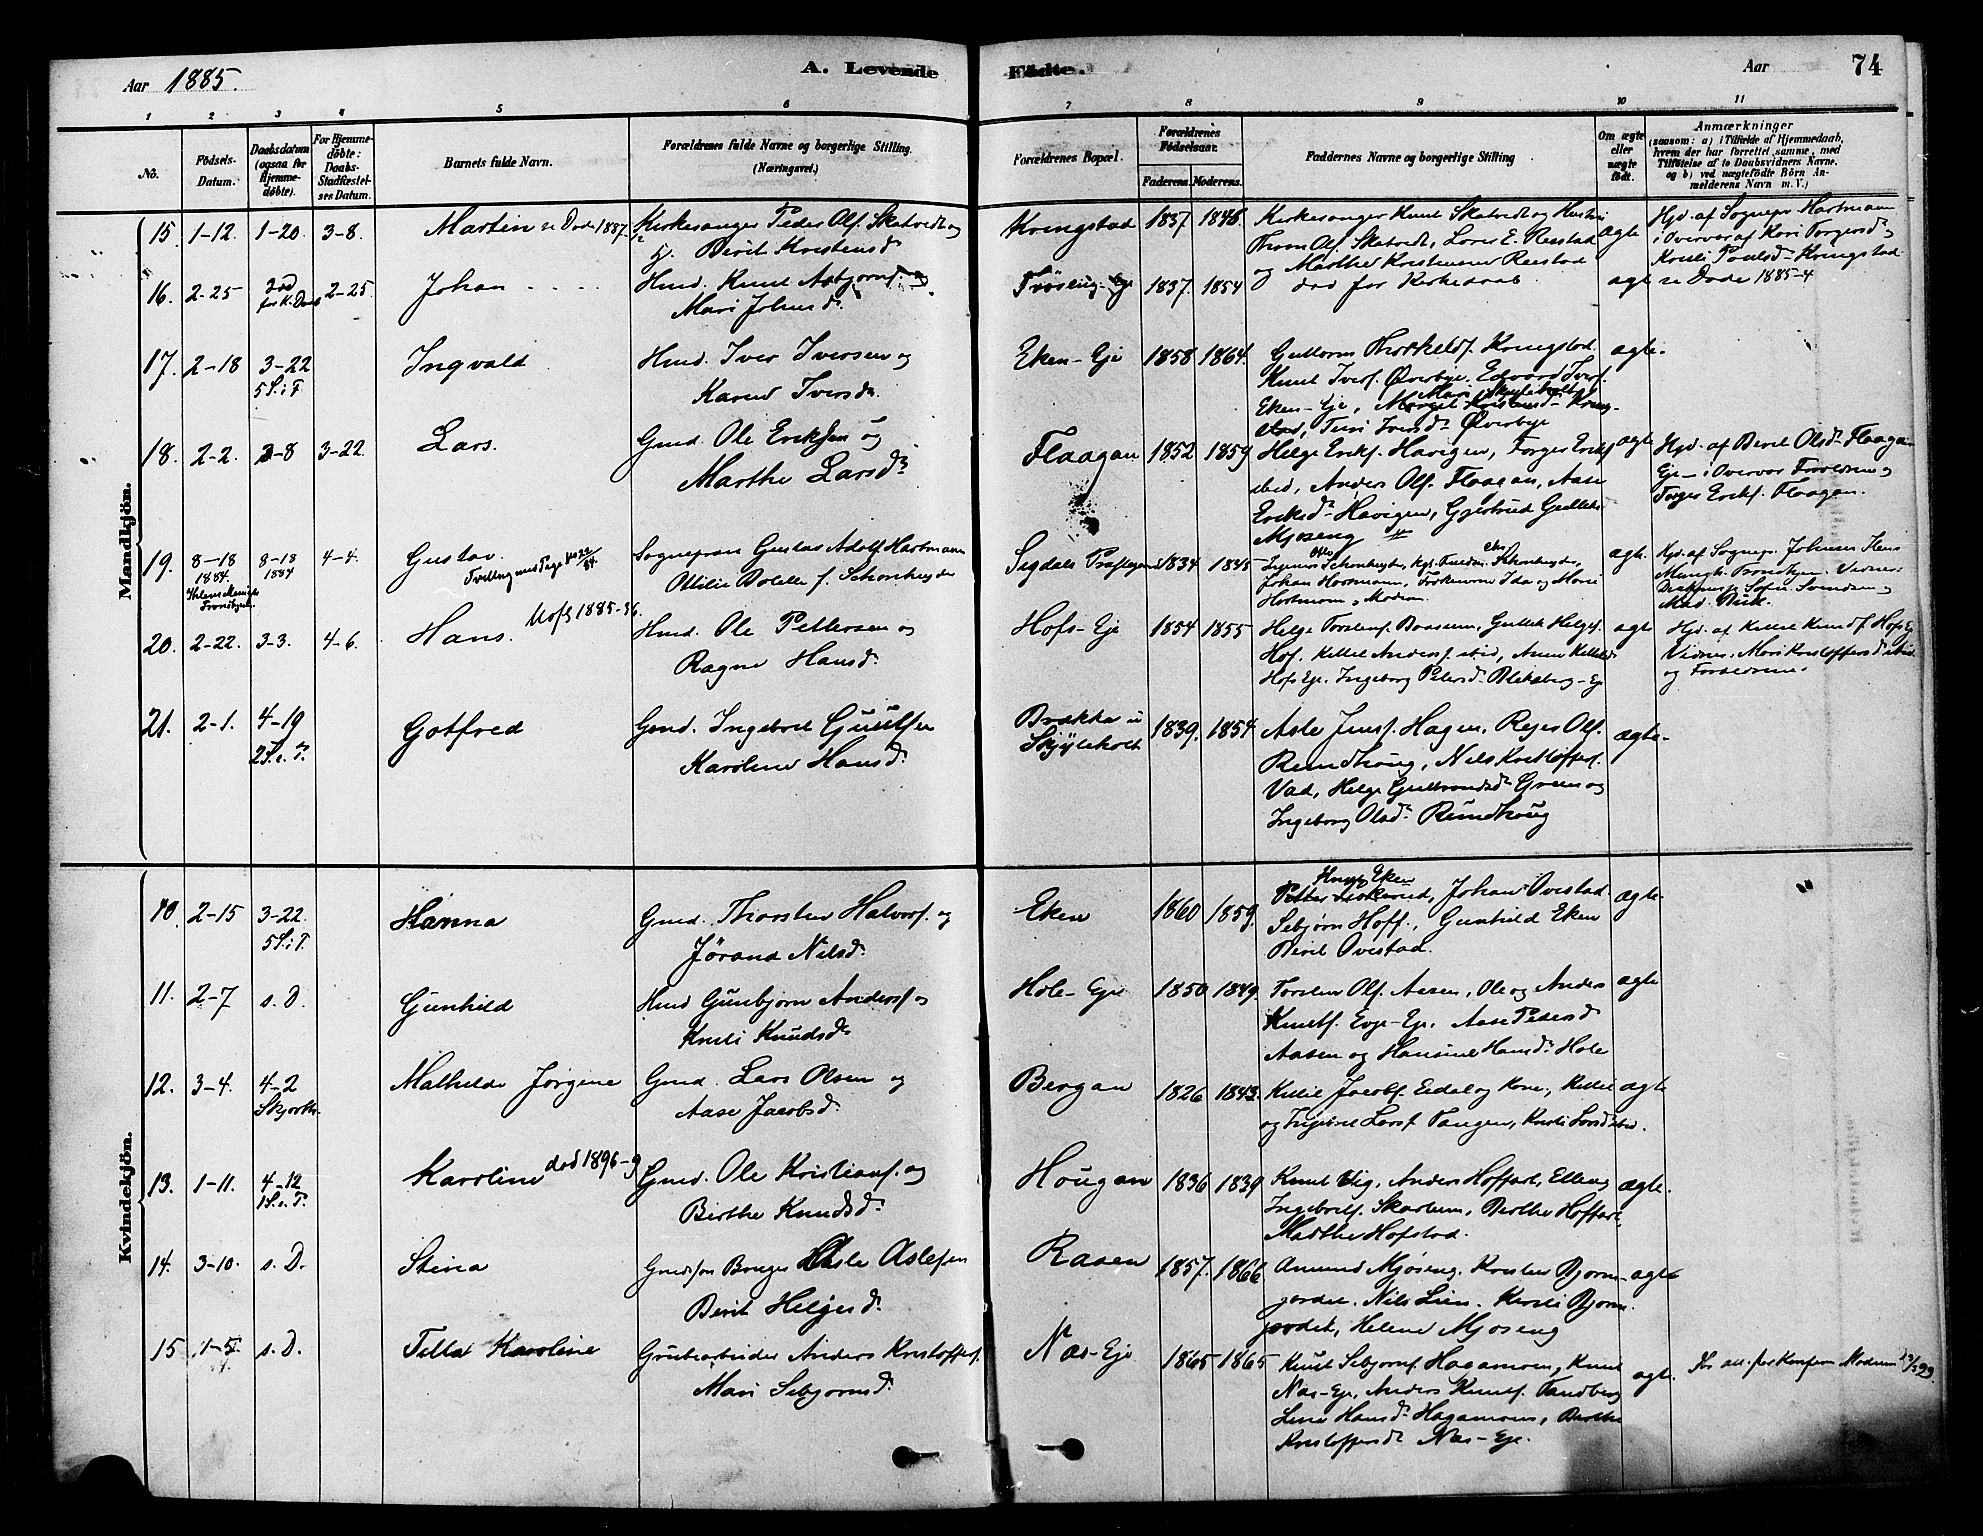 Aar 1885.
A. Levende Födte.
Aar
74
1 2 3 4 5 6 7 8 9 10 11
No.
Födsels-Datum.
Daabsdatum (ogsaa for Hjemme-döbte).
For Hjemme-döbte: Daabs-Stadfæstel-ses Datum.
Barnets fulde Navn.
Forældrenes fulde Navne og borgerlige Stilling. (Næringsvei.)
Forældrenes Bopæl.
Forældrenes Födselsaar.
Faderens. Moderens.
Faddernes Navne og borgerlige Stilling
Om ægte eller uægte födt.
Anmærkninger
(saasom: a) i Tilfælde af Hjemmedaab,
hvem der har forrettet samme, med
Tilföielse af to Daabsvidners Navne,
og b) ved uægtefödte Börn An-
melderens Navn m. V.)
Mandkjön.
15. 1-12. 1-20. 3-8. Martin
Kirkesanger Peder Ols. Skatvedt og
Berit Kristensd
Kringstad 1837 1845
Kirkesanger Knut Skatvedt og Hustru
Thom Ols. Skatvedt, Lars E. Reistad
og Marthe Kristensen Reistad
ægte
Hjd. af Sognepr Hartmann
i Overvær af Kari Torgersd og
Kristi Poulsd Kringstad
16. 2-25 död før K. Daab 2-25 Johan
Hmd. Knut Asbjørns. og
Mari Johnsd.
Eje 1837. 1854
død før Kirkedaab
ægte
Døde 1885-4
17. 2-18 3-22 5 S. i F. Ingvald
Hmd. Iver Iversen og
Karen Iversd.
Eken-Eje 1858 1864.
Guttorm Thorkelds. Kringstad
Knut Ivers. Øverbye. Edvard Ivers.
Eken-Eje,
Turi Iversd. Øverbye
ægte.
18. 2-2. 3-8 3-22. Lars.
Gmd. Ole Eriksen og
Marthe Larsd.
Flaagan 1852 1859
Helge Eriks. Havigen, Torger Eriks
ibid, Anders Ols. Flaagan, Aase
Eriksd. Havigen, Gjertrud Gulliks
Mjøseng
ægte
Hjd. af Berit Olsd. Flaagan
Eje i Overvær Forældrene og
Torger Eriks. Flaagan.
19. 8-18 1884. 8-18 1884 4-4. Gustav.
Sognepræst Gustav Adolf Hartmann
Ottilie Bolette f. Schönheyder
Sigdals Præstegaard 1834 1845
Johan Hartmann, Frøkenerne Ida og Marie
Hartmann og Moderen
ægte.
Hjd. af Sognepr. Johnsen Hans
20. 2-22. 3-3. 4-6. Hans. Udfl 1885-36.
Hmd. Ole Pettersen og
Ragne Hansd.
Hofs-Eje 1854 1855
Helge Torstens. Baasum, Gullik Helges.
Hof. Kittil Anders. ibid, Anne Kittilsd
Hofs Eje. Ingeborg Petersd. Blikaberg-Eje
ægte
Hjd. af Kittil Knuds. Hofs Eje
Vidner: Mari Kristoffersd. ibid
og Forældrene.
21. 2-1. 4-19 2 S. e. P. Gotfred
Gmd. Ingebret Gulliksen
Karoline Hansd.
Brækka u
Skjyleholt
1839. 1854
Asle Jens. Hagen, Reier Ols.
Rundhoug, Nils Kristoffers.
Vad, Helge Gulbrandsd. Green og
Ingeborg Olsd. Rundhoug
ægte.
Kvindekjön.
10. 2-15 3-22. 5 S. i F. Hanna
Gmd. Thorsten Halvors. og
Jørand Nilsd.
Eken 1860 1859.
Eken
Johan Ovestad
Sebjørn Hoff., Gunhild Eken
Berit Ovestad.
ægte.
11. 2-7 s. D. Gunhild
Hmd Gunbjørn Anders. og
Kristi Knudsd.
Hole-Eje 1850 1849.
Torsten Ols. Aasen, Ole og Anders
Knuts. Evje-Eje, Aase Pedersd
Aasen og Hansine Hansd. Hole
ægte
12. 3-4. 4-2 Skjærth. Mathilde Jørgine
Gmd. Lars Olsen og
Aase Jacobsd.
Bergan 1826 1843.
Kittil Jacobs. Eidal og Kone, Kittil
og Ingebret Lars. Tangen, Kristi Larsd ibid.
ægte
13. 1-11. 4-12 1 S. e. P. Karoline død 1896-9
Gmd. Ole Kristians. og
Birthe Knudsd.
Hougan 1836 1839
Knut Vig, Anders Hoffart, Elling
Ingebrets. Skartum, Berthe Hoffart,
Marthe Hofstad.
ægte.
14. 3-10. s. D. Stina
Gmdsøn Bruger Asle Aslesen
Berit Helgesd.
Raaen 1857. 1866
Amund Mjøseng. Kristen Bjørn-
jordet. Nils Lien. Kristi Bjørn
jordet, Helene Mjøseng
ægte
15 1-5. s. D. Tilla Karoline
Grubearbeider Anders Kristoffers.
Mari Sebjørnsd.
Næs-Eje 1865 1865
Knut Sebjørns. Hagamoen, Knut
Næs-Eje, Anders Knuts. Tandberg
Lina Hansd. Hagamoen, Berthe
Kristoffersd. Næs-Eje.
ægte.